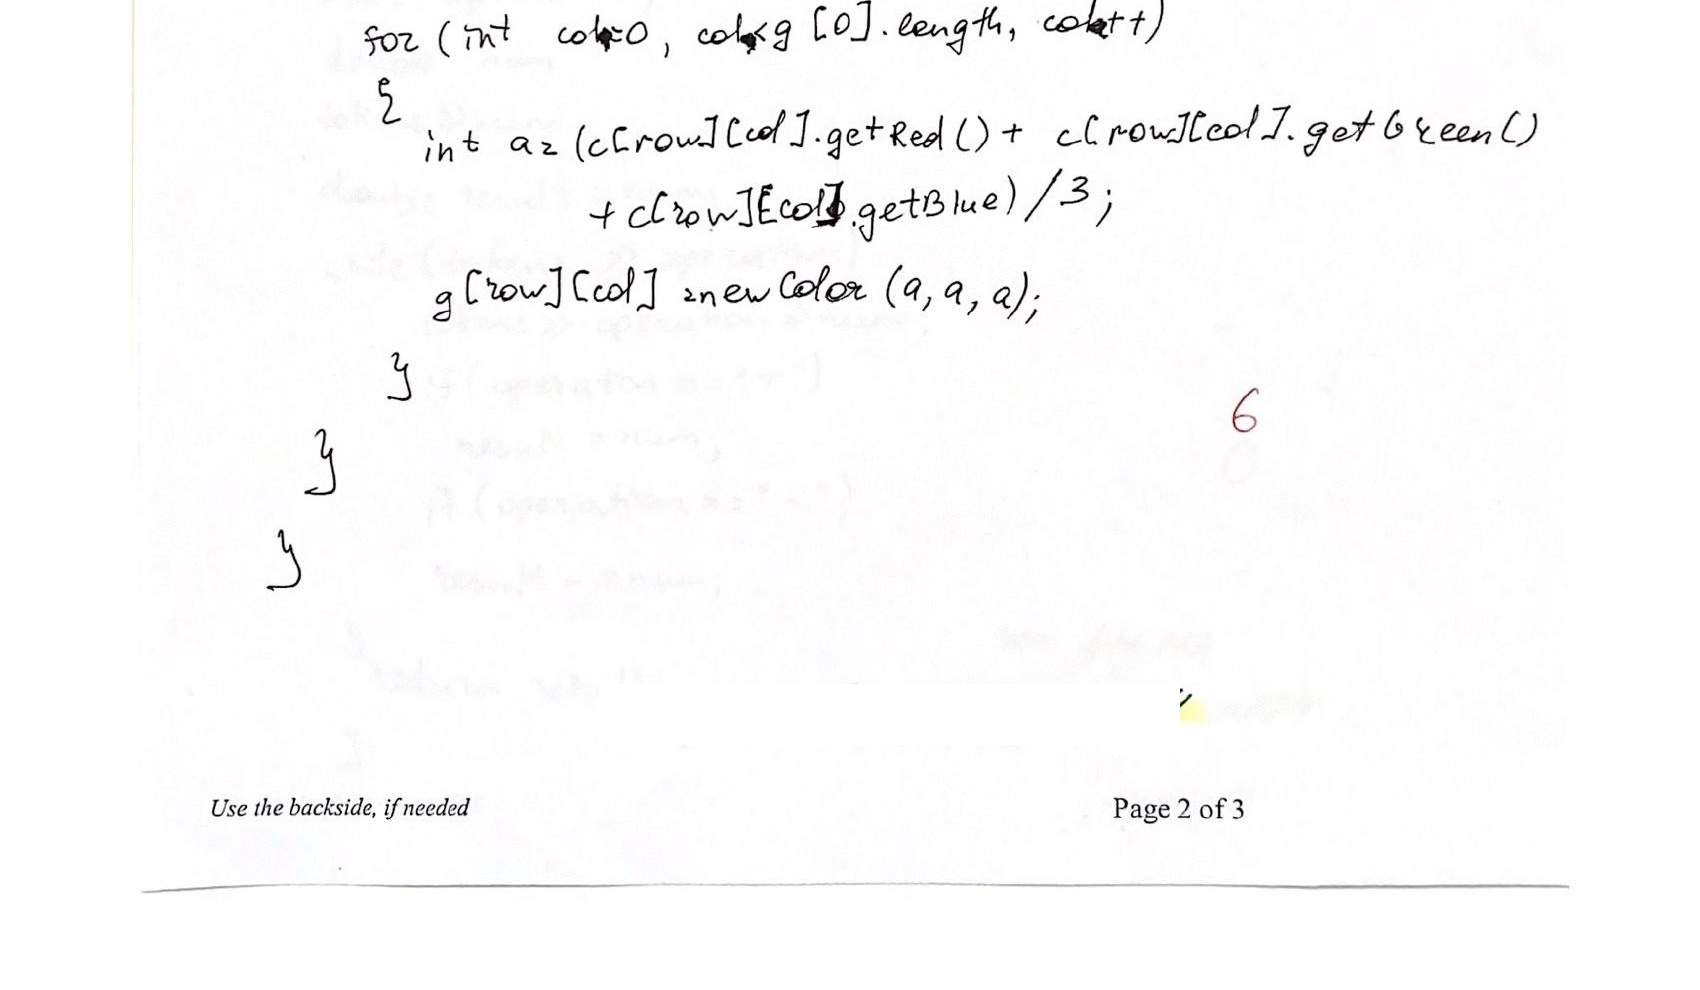 for (int col=0, col<g [0].length, col++)
{
int a= (c[row][col].getRed()+ c[row][col].getGreen()
+ c[row][col].getBlue)/3;
g[row][col] =new Color (a, a, a);
}
6
}
}
Use the backside, if needed
Page 2 of 3